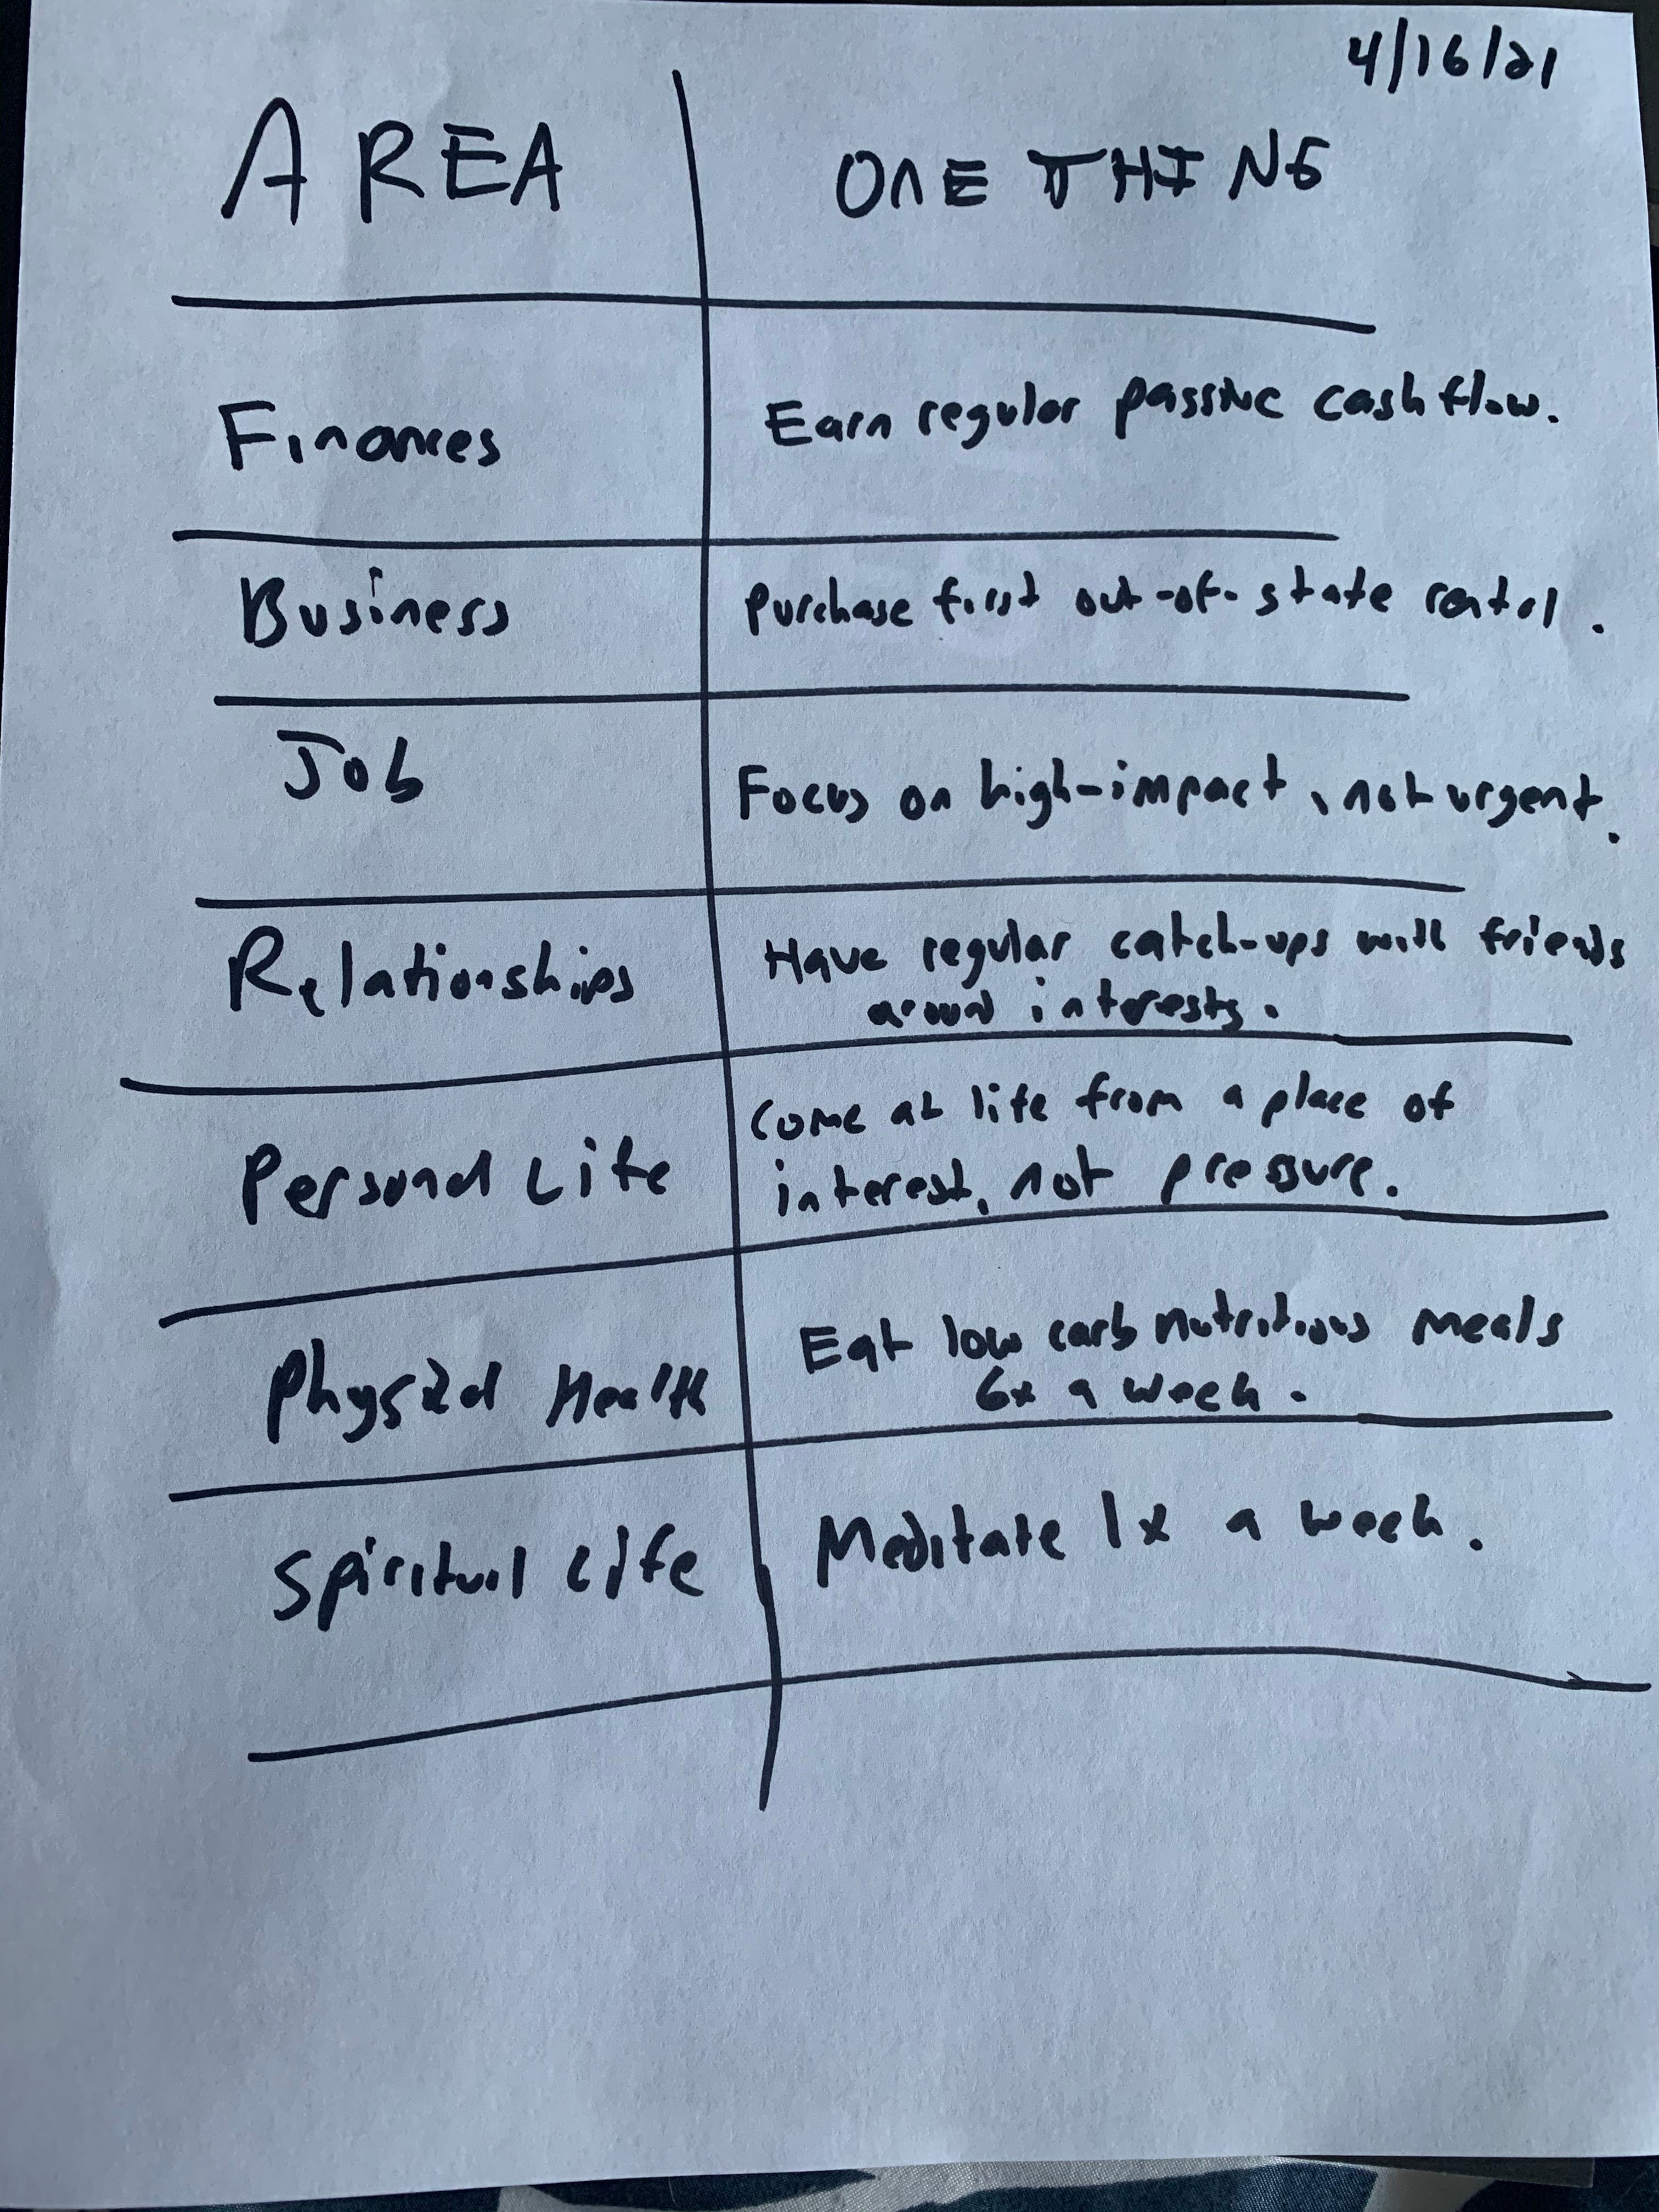 4/16/21
AREA
ONE THING
Finances
Earn regular passive cashflow.
Business
Purchase first out-of-state rental.
Job
Focus on high-impact, not urgent.
Relationships
Have regular catch-ups with friends
around interests.
Personal Life
Come at life from a place of
interest, not pressure.
Physical Health
Eat low carb nutritious meals
6x a week.
Spiritual Life
Meditate 1x a week.